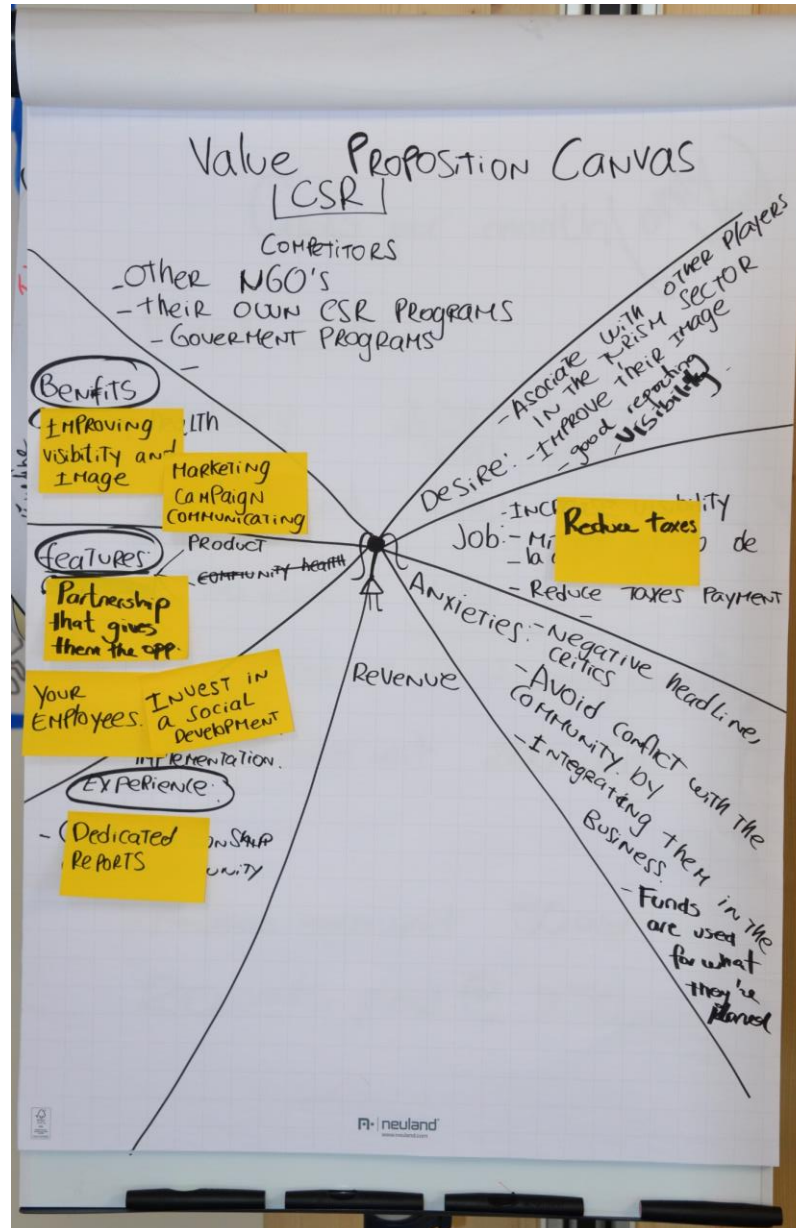 Value Proposition Canvas
CSR
Competitors
- Other NGO's
- their own CSR Programs
- Goverment Programs
-
Benifits
LTH
Improving
visibility and
Image
Marketing
Campaign
communicating
features:
Product
community health
Partnership
that gives
them the opp.
Your
Employees.
Invest in
a social
Development
Implementation.
Experience:
Dedicated
Reports
Revenue
Desire:
- Asociate with other players
in the turism sector
- Improve their image
- good reporting
- visibility
Job:
- Inc
Reduce taxes
de
- la
- Reduce taxes payment
-
Anxieties:
- Negative headline,
critics
- Avoid conflict with the
community by
- Integrating them in the
Business.
- Funds
are used
for what
they're
planed
neuland
www.neuland.com